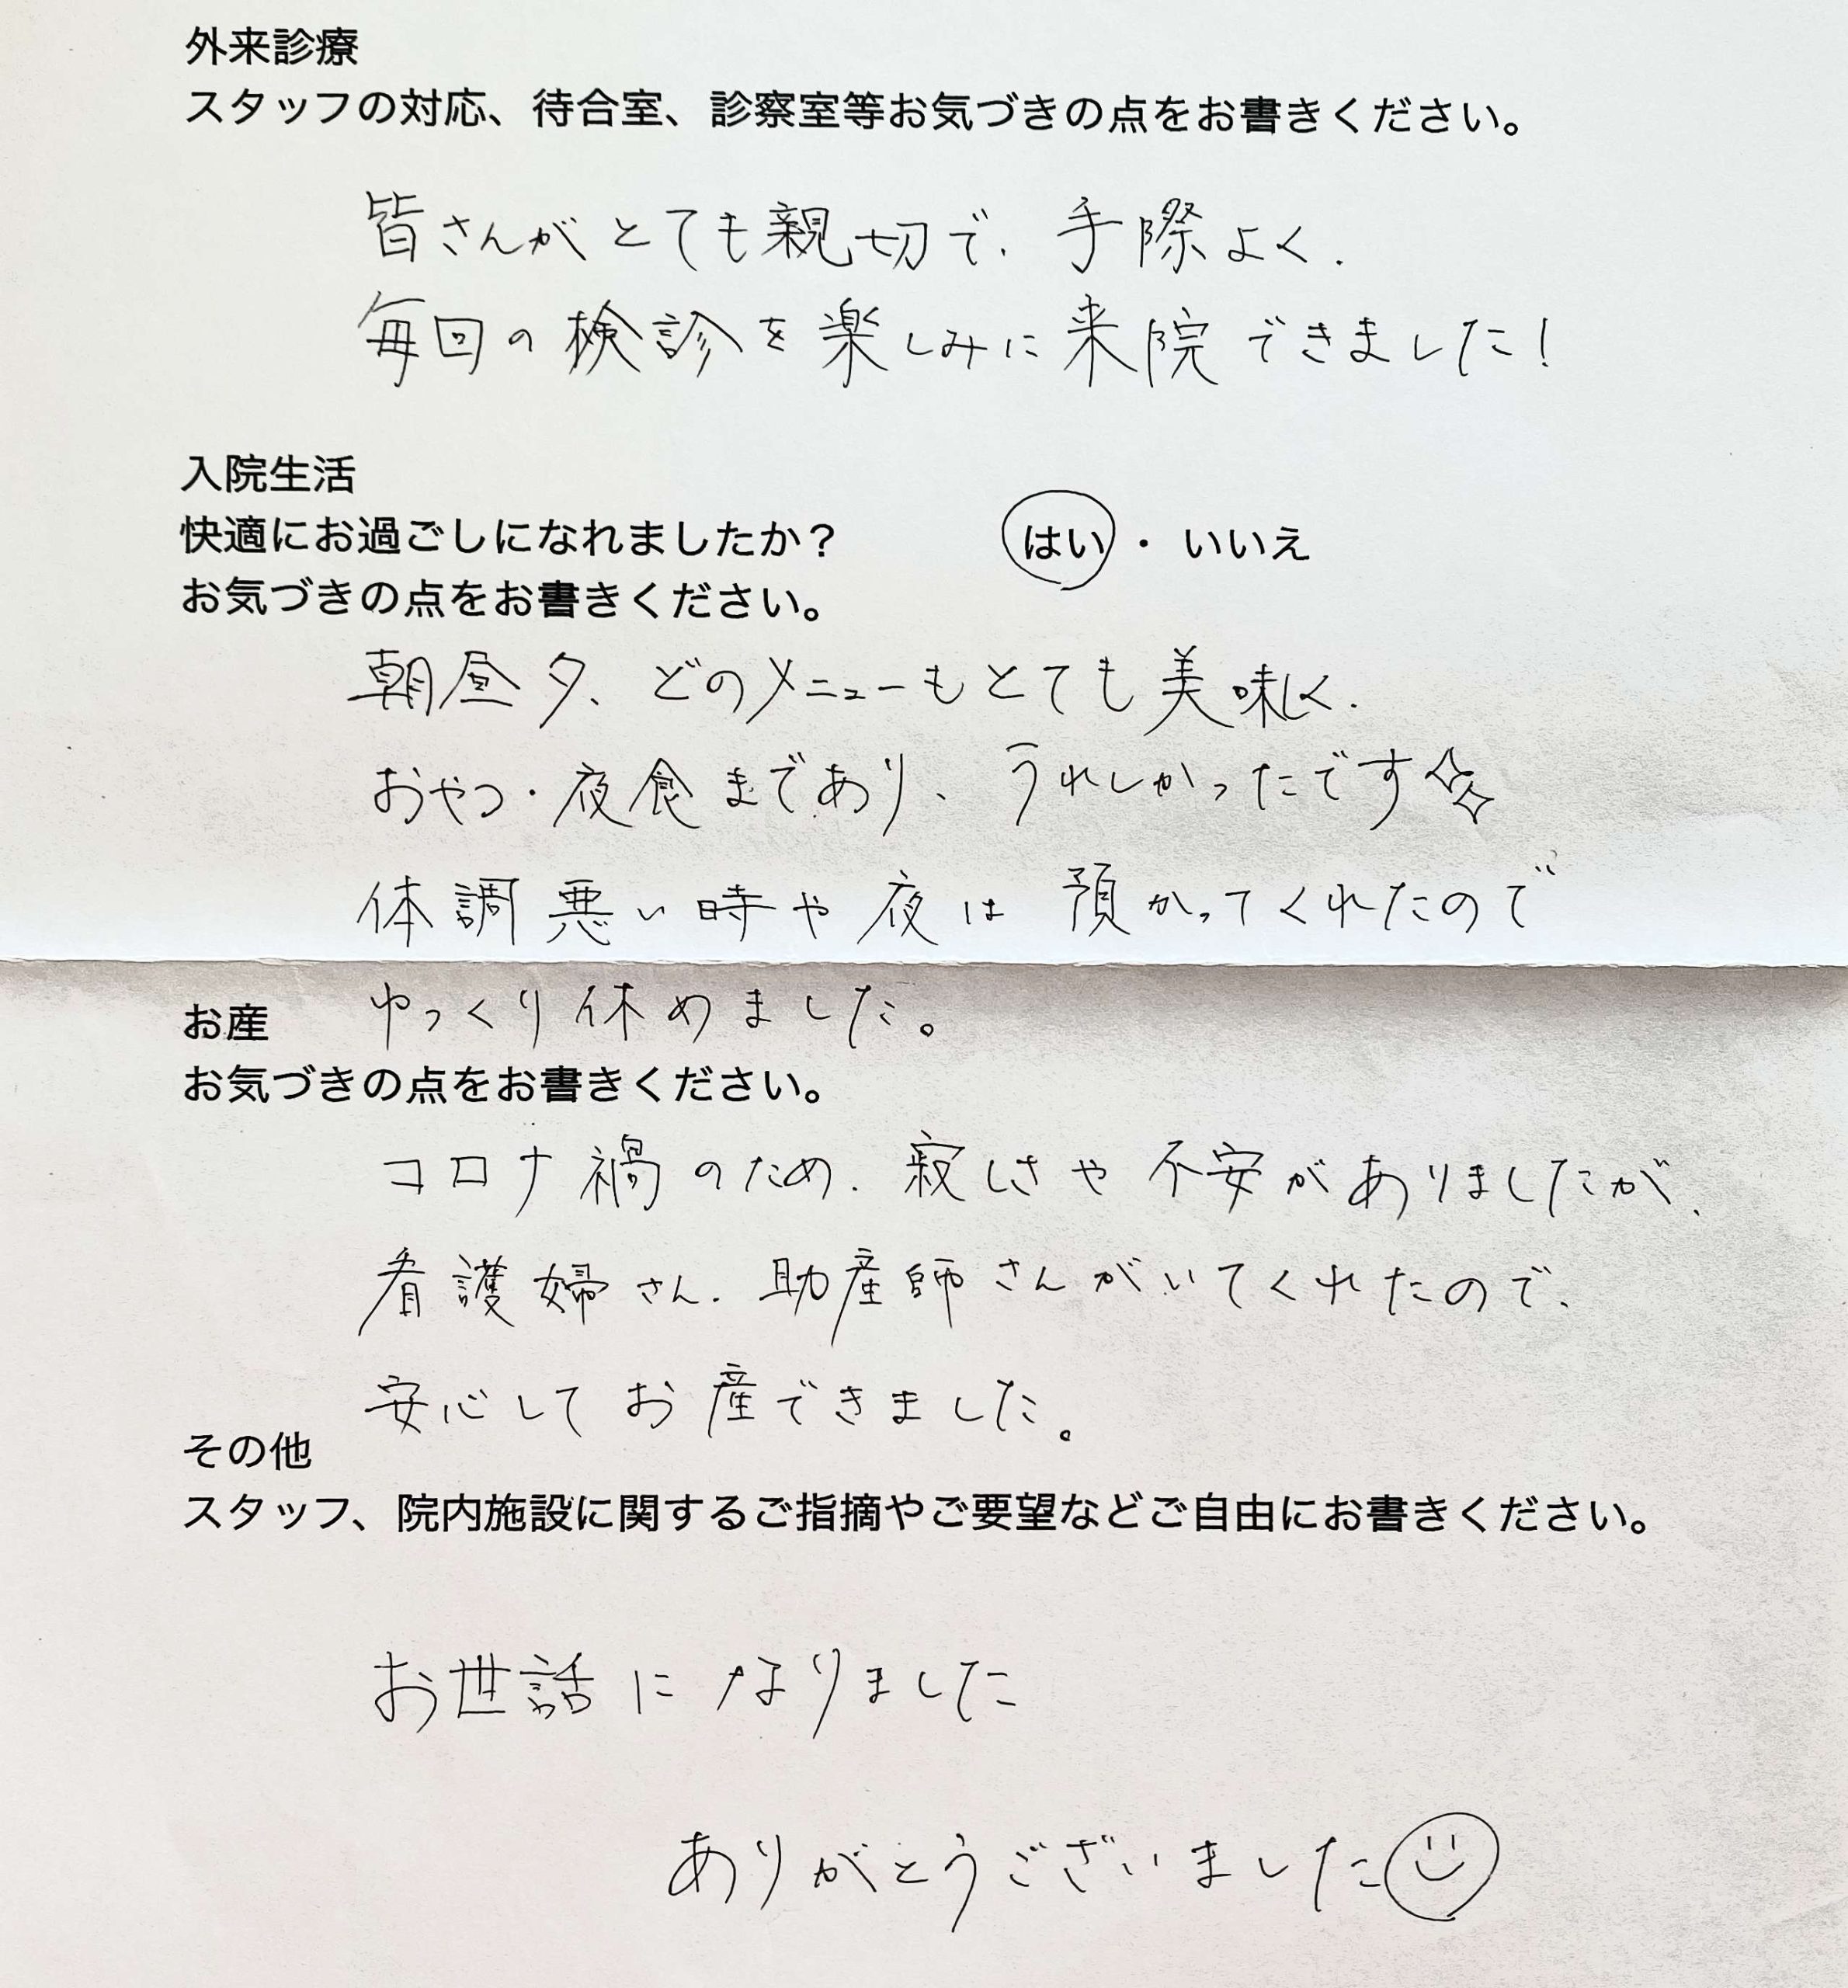 外来診療
スタッフの対応、待合室、診察室等お気づきの点をお書きください。
皆さんがとても親切で、手際よく、
毎回の検診を楽しみに来院できました！
入院生活
快適にお過ごしになれましたか？ はい ・ いいえ
お気づきの点をお書きください。
朝昼夕、どのメニューもとても美味しく、
おやつ・夜食まであり、うれしかったです
体調悪い時や夜は預かってくれたので
ゆっくり休めました。
お産
お気づきの点をお書きください。
コロナ禍のため、寂しさや不安がありましたが、
看護婦さん、助産師さんがいてくれたので、
安心してお産できました。
その他
スタッフ、院内施設に関するご指摘やご要望などご自由にお書きください。
お世話になりました
ありがとうございました